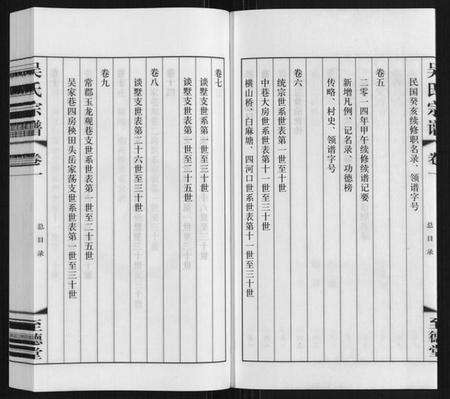 吴氏宗谱
卷一
总目录
至德堂
民国癸亥续修职名录、领谱字号
卷五
二零一四年甲午续修续谱记要
新增凡例、记名录、功德榜
传略、村史、领谱字号
卷六
统宗世系世表第一世至十世
中巷大房世系世表第十一世至三十世
横山桥、白麻塘、四河口世系世表第十一世至三十世
卷七
谈墅支世表第一世至三十世
谈墅支世系世表第一世至二十五世
卷八
谈墅支世表第二十六世至三十世
卷九
常郡玉龙岘巷支世系世表第一世至二十五世
吴家巷四房秧田头岳家荡支世系世表第一世至三十世
吴氏宗谱
卷一
总目录
至德堂